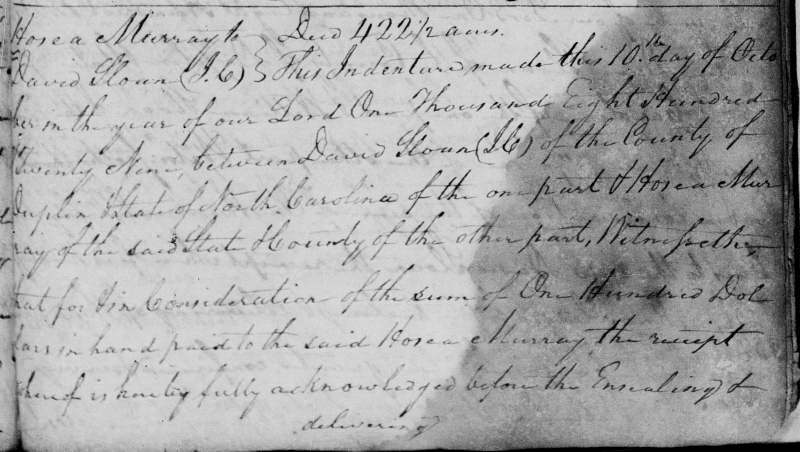 Hosea Murray to } Deed 422 1/2 acres.
David Sloan (I.C) } This Indenture made this 10th day of Octo
ber in the year of our Lord One Thousand Eight Hundred
Twenty Nine, between David Sloan (I.C) of the County of
Duplin & State of North Carolina of the one part & Hosea Mur
ray of the said State & County of the other part, Witnesseth,
that for & in Consideration of the sum of One Hundred Dol
lars in hand paid to the said Hosea Murray the receipt
whereof is hereby fully acknowledged before the Ensealing &
delivering